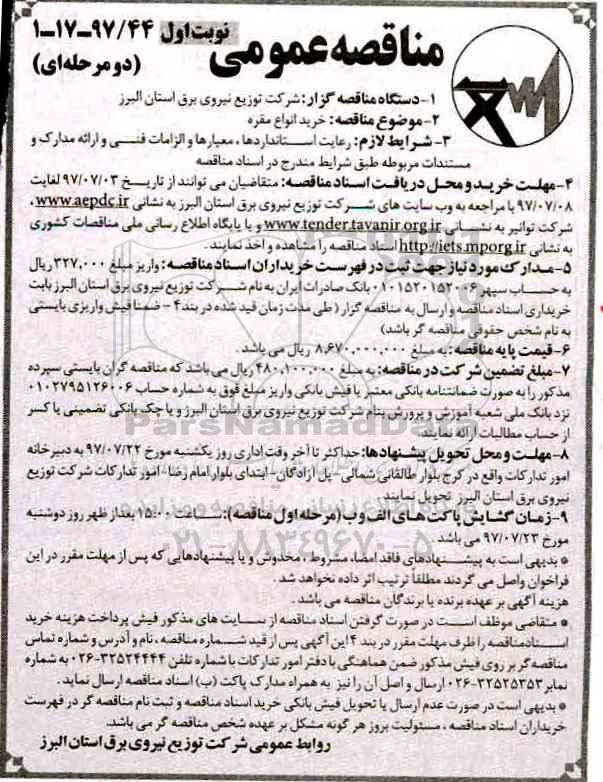 مناقصه عمومی
نوبت اول ۴۴/۹۷-۱۷-۱
(دو مرحله‌ای)
۱-دستگاه مناقصه گزار: شرکت توزیع نیروی برق استان البرز
۲-موضوع مناقصه: خرید انواع مقره
۳- شرایط لازم: رعایت استانداردها ، معیارها و الزامات فنی و ارائه مدارک و
مستندات مربوطه طبق شرایط مندرج در اسناد مناقصه
۴-مهلت خرید و محل دریافت اسناد مناقصه: متقاضیان می توانند از تاریخ ۹۷/۰۷/۰۳ لغایت
۹۷/۰۷/۰۸ با مراجعه به وب سایت های شرکت توزیع نیروی برق استان البرز به نشانی www.aepdc.ir،
شرکت توانیر به نشانی www.tender.tavanir.org.ir و یا پایگاه اطلاع رسانی ملی مناقصات کشوری
به نشانی http://iets.mporg.ir اسناد مناقصه را مشاهده و اخذ نمایند.
۵-مدارک مورد نیاز جهت ثبت در فهرست خریداران اسناد مناقصه: واریز مبلغ ۳۲۷,۰۰۰ ریال
به حساب سپهر ۰۱۰۱۵۲۰۱۵۲۰۰۶ بانک صادرات ایران به نام شرکت توزیع نیروی برق استان البرز بابت
خریداری اسناد مناقصه و ارسال به مناقصه گزار (طی مدت زمان قید شده در بند ۴ - ضمنا فیش واریزی بایستی
به نام شخص حقوقی مناقصه گر باشد)
۶-قیمت پایه مناقصه: به مبلغ ۸,۶۷۰,۰۰۰,۰۰۰ ریال می باشد .
۷-مبلغ تضمین شرکت در مناقصه: به مبلغ ۴۸۰,۱۰۰,۰۰۰ ریال می باشد که مناقصه گران بایستی سپرده
مذکور را به صورت ضمانتنامه بانکی معتبر یا فیش بانکی واریز مبلغ فوق به شماره حساب ۰۱۰۲۷۹۵۱۲۶۰۰۶
نزد بانک ملی شعبه آموزش و پرورش بنام شرکت توزیع نیروی برق استان البرز و یا چک بانکی تضمینی یا کسر
از حساب مطالبات ارائه نمایند.
۸-مهلت و محل تحویل پیشنهادها: حداکثر تا آخر وقت اداری روز یکشنبه مورخ ۹۷/۰۷/۲۲ به دبیرخانه
امور تدارکات واقع در کرج بلوار طالقانی شمالی- پل آزادگان- ابتدای بلوار امام رضا- امور تدارکات شرکت توزیع
نیروی برق استان البرز تحویل نمایند.
۹-زمان گشایش پاکت های الف و ب (مرحله اول مناقصه): ساعت ۱۵:۰۰ بعداز ظهر روز دوشنبه
مورخ ۹۷/۰۷/۲۳ می باشد .
* بدیهی است به پیشنهادهای فاقد امضا، مشروط ، مخدوش و یا پیشنهادهایی که پس از مهلت مقرر در این
فراخوان واصل می گردند مطلقا ترتیب اثر داده نخواهد شد .
هزینه آگهی بر عهده برنده یا برندگان مناقصه می باشد .
* متقاضی موظف است در صورت گرفتن اسناد مناقصه از سایت های مذکور فیش پرداخت هزینه خرید
اسنادمناقصه را ظرف مهلت مقرر در بند ۴ این آگهی پس از قید شماره مناقصه ، نام و آدرس و شماره تماس
مناقصه گر بر روی فیش مذکور ضمن هماهنگی با دفتر امور تدارکات با شماره تلفن ۳۲۵۲۴۴۴۴-۰۲۶ به شماره
نمابر ۳۲۵۲۵۳۵۳-۰۲۶ ارسال و اصل آن را نیز به همراه مدارک پاکت (ب) اسناد مناقصه ارسال نماید .
* بدیهی است در صورت عدم ارسال یا تحویل فیش بانکی خرید اسناد مناقصه و ثبت نام مناقصه گر در فهرست
خریداران اسناد مناقصه ، مسئولیت بروز هر گونه مشکل بر عهده شخص مناقصه گر می باشد.
روابط عمومی شرکت توزیع نیروی برق استان البرز
ParsNamadData
۰۲۱-۸۸۳۴۹۶۷۰-۵